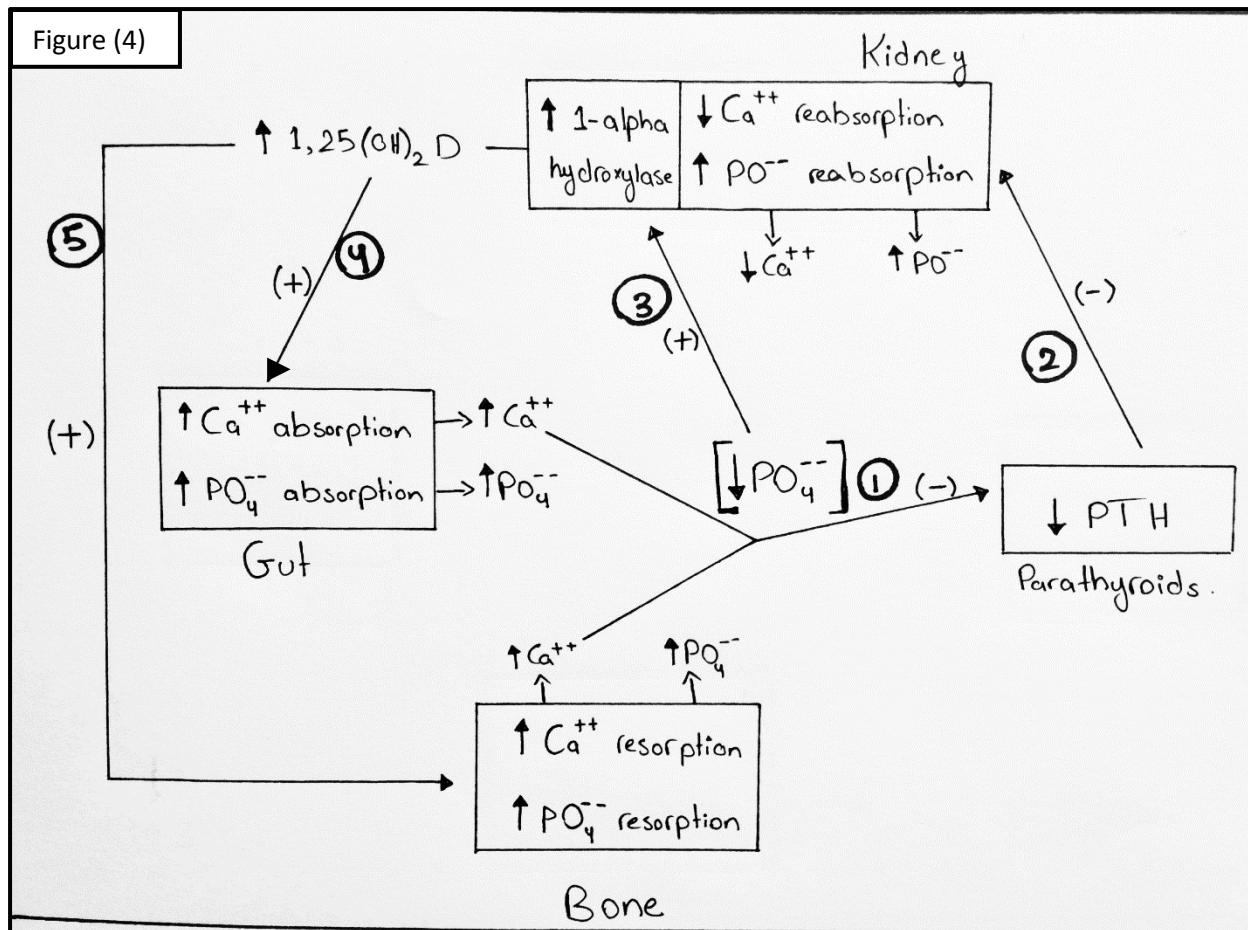 Figure (4)
Kidney
↑ 1-alpha
hydroxylase
↓ Ca++ reabsorption
↑ PO-- reabsorption
↓Ca++
↑PO--
↑ 1,25(OH)2 D
5
(+)
4
(+)
3
(+)
2
(-)
↑ Ca++ absorption
↑ PO4-- absorption
Gut
↑ Ca++
↑PO4--
[↓PO4--]
1
(-)
↓ PTH
Parathyroids.
↑Ca++
↑PO4--
↑ Ca++ resorption
↑ PO4-- resorption
Bone